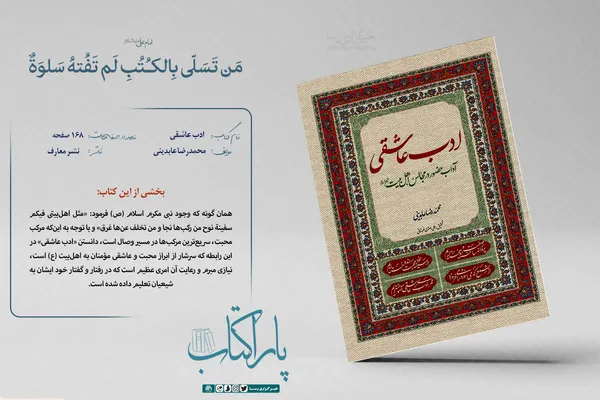 امام علی علیه‌السلام
مَن تَسَلّی بِالکُتُبِ لَم تَفُتهُ سَلوَةٌ
نام کتاب: ادب عاشقی
تعداد صفحات: ۱۶۸ صفحه
مولف: محمدرضا عابدینی
ناشر: نشر معارف
بخشی از این کتاب:
همان گونه که وجود نبی مکرم اسلام (ص) فرمود: «مثل اهل‌بیتی فیکم
سفینة نوح من رکب‌ها نجا و من تخلف عن‌ها غرق» و با توجه به این‌که مرکب
محبت، سریع‌ترین مرکب‌ها در مسیر وصال است، دانستن «ادب عاشقی» در
این رابطه که سرشار از ابراز محبت و عاشقی مؤمنان به اهل‌بیت (ع) است،
نیازی مبرم و رعایت آن امری عظیم است که در رفتار و گفتار خود ایشان به
شیعیان تعلیم داده شده است.
پاراکتاب
خبرگزاری رسا
خبرگزاری رسا
ادب عاشقی
آداب حضور در مجالس اهل بیت
محمدرضا عابدینی